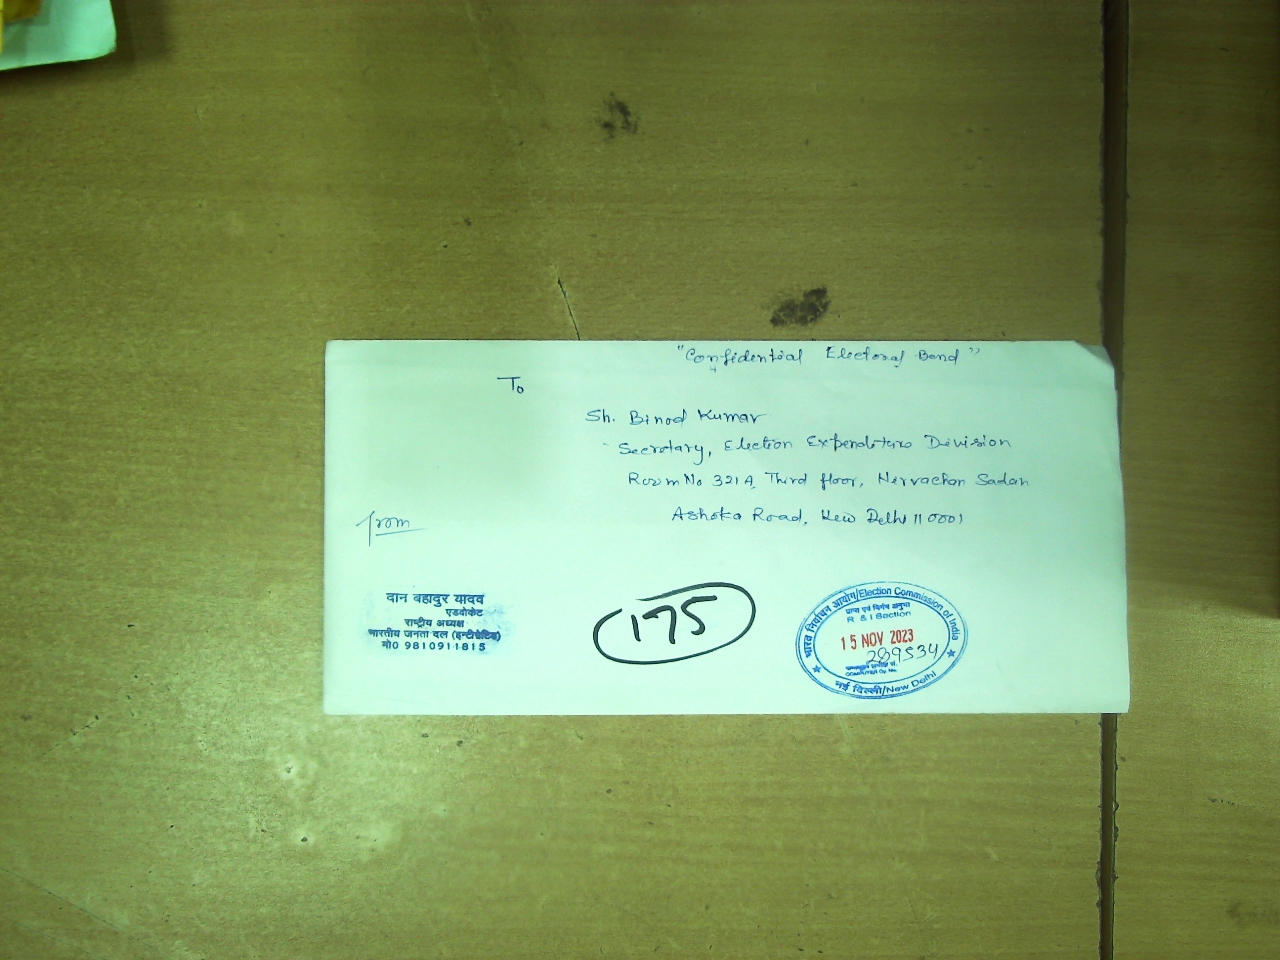 "Confidential Electoral Bond"
To
Sh. Binod Kumar
Secretary, Election Expenditure Division
Room No 321A, Third floor, Nirvachan Sadan
Ashoka Road, New Delhi 110001
From
दान बहादुर यादव
एडवोकेट
राष्ट्रीय अध्यक्ष
भारतीय जनता दल (इन्टीग्रेटिड)
मो0 9810911815
175
भारत निर्वाचन आयोग/Election Commission of India
R & I Section
15 NOV 2023
289534
COMPUTER Dy. No.
नई दिल्ली/New Delhi